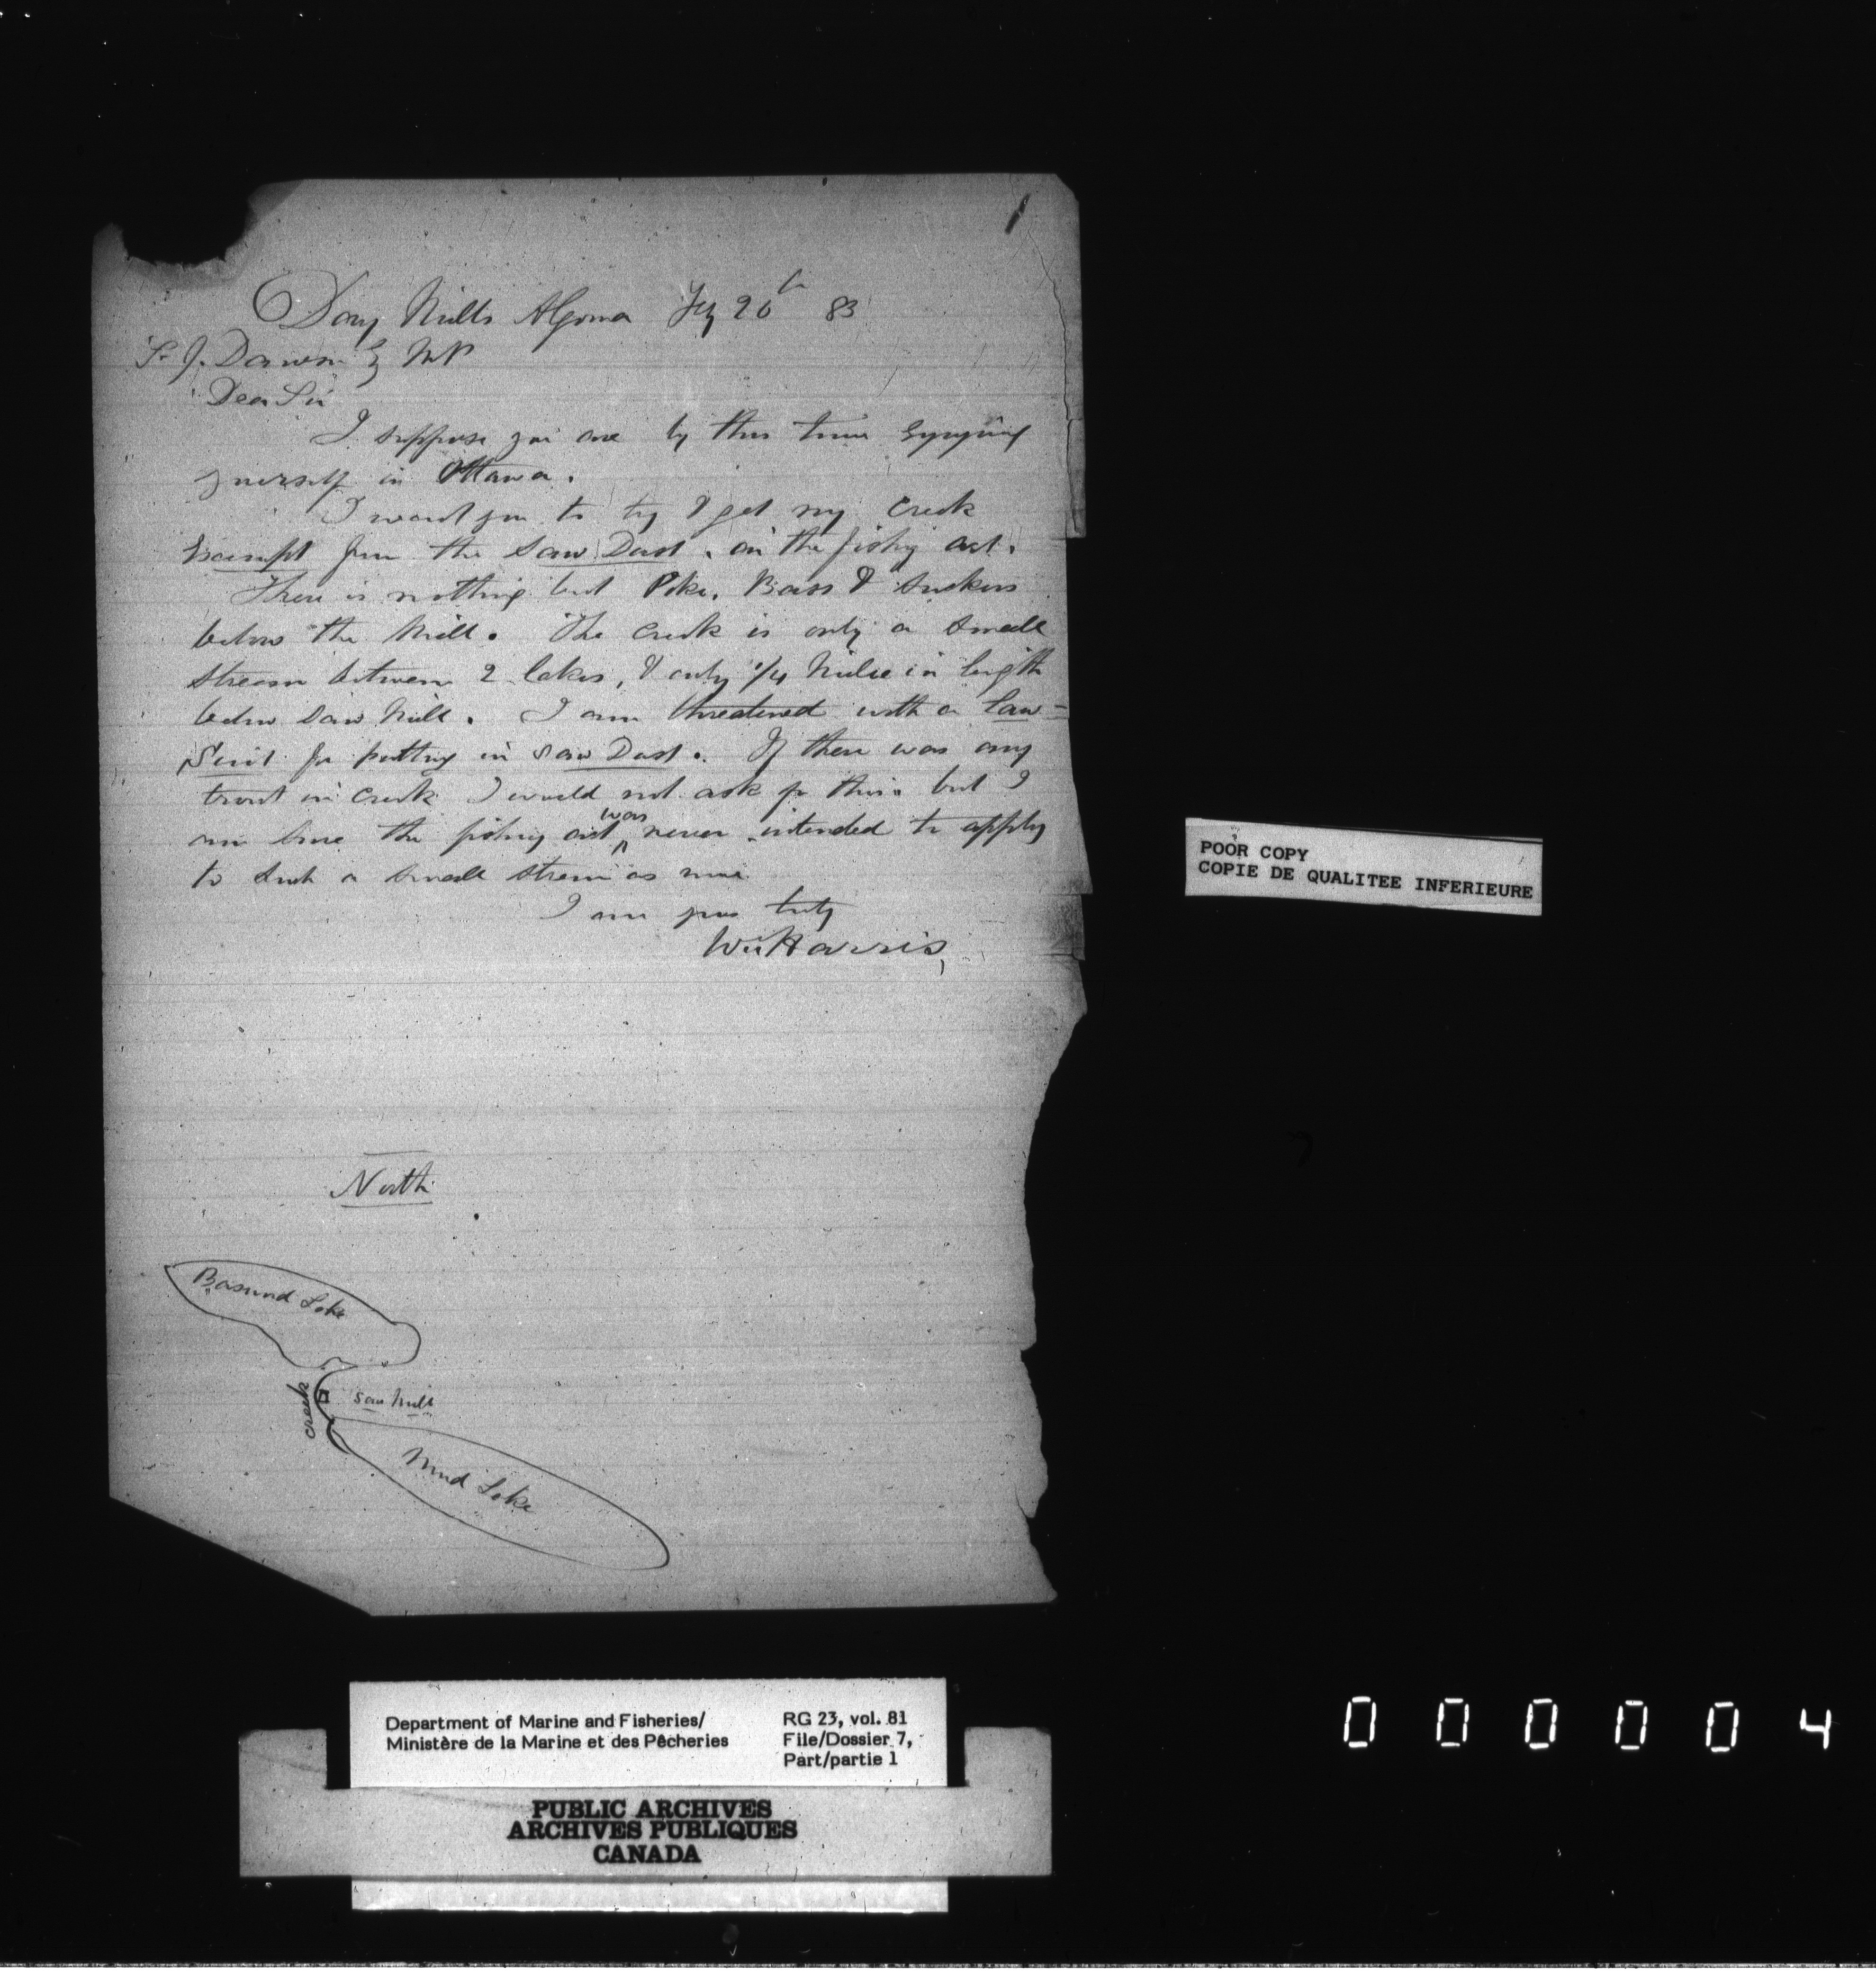 Day Mills Algoma Feby 26th 83
S. J. Dawson Esq MP
Dear Sir
I suppose you are by this time Enjoying
yourself in Ottawa.
I want you to try & get my Creek
Exempt from the Saw Dust. on the fishing act.
There is nothing but Pike, Bass & Suckers
below the Mill. The Creek is only a Small
Stream between 2 lakes, & only 1/4 Mile in length
below Saw Mill. I am threatened with a law-
Suit for putting in Saw Dust. If there was any
trout in Creek I would not ask for this but I
am sure the fishing act was never intended to apply
to such a small stream as mine
I am yours truly
Wm Harris,
North
Basund Lake
creek
saw mill
Mud Lake
POOR COPY
COPIE DE QUALITEE INFERIEURE
Department of Marine and Fisheries/
Ministère de la Marine et des Pêcheries
RG 23, vol. 81
File/Dossier 7,
Part/partie 1
PUBLIC ARCHIVES
ARCHIVES PUBLIQUES
CANADA
000004